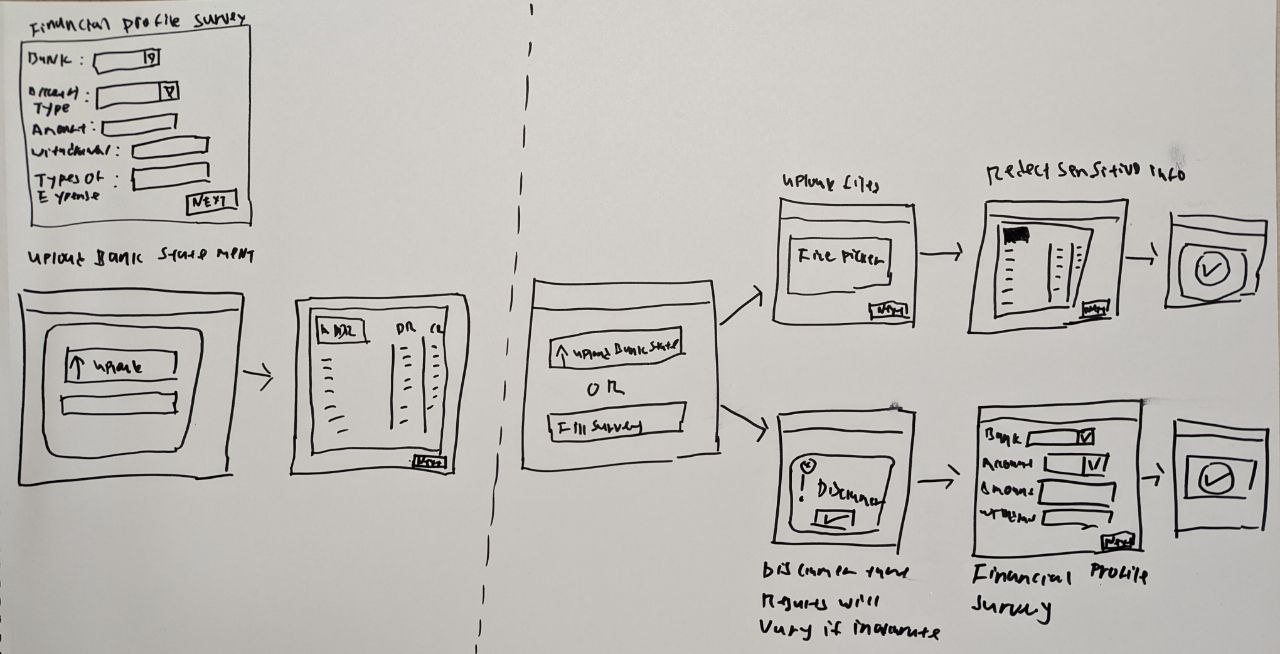 Financial profile survey
Bank :
Type
Amount :
Withdrawal :
Types of :
Expense
NEXT
Upload Bank Statement
Upload
ADDR DR CR
Next
Upload Bank State
OR
Fill Survey
Upload files
File Picker
Next
Redact Sensitive info
Next
! Disclaimer
Disclaimer
Results will
Vary if inaccurate
Bank
Amount
Next
Financial Profile
Survey